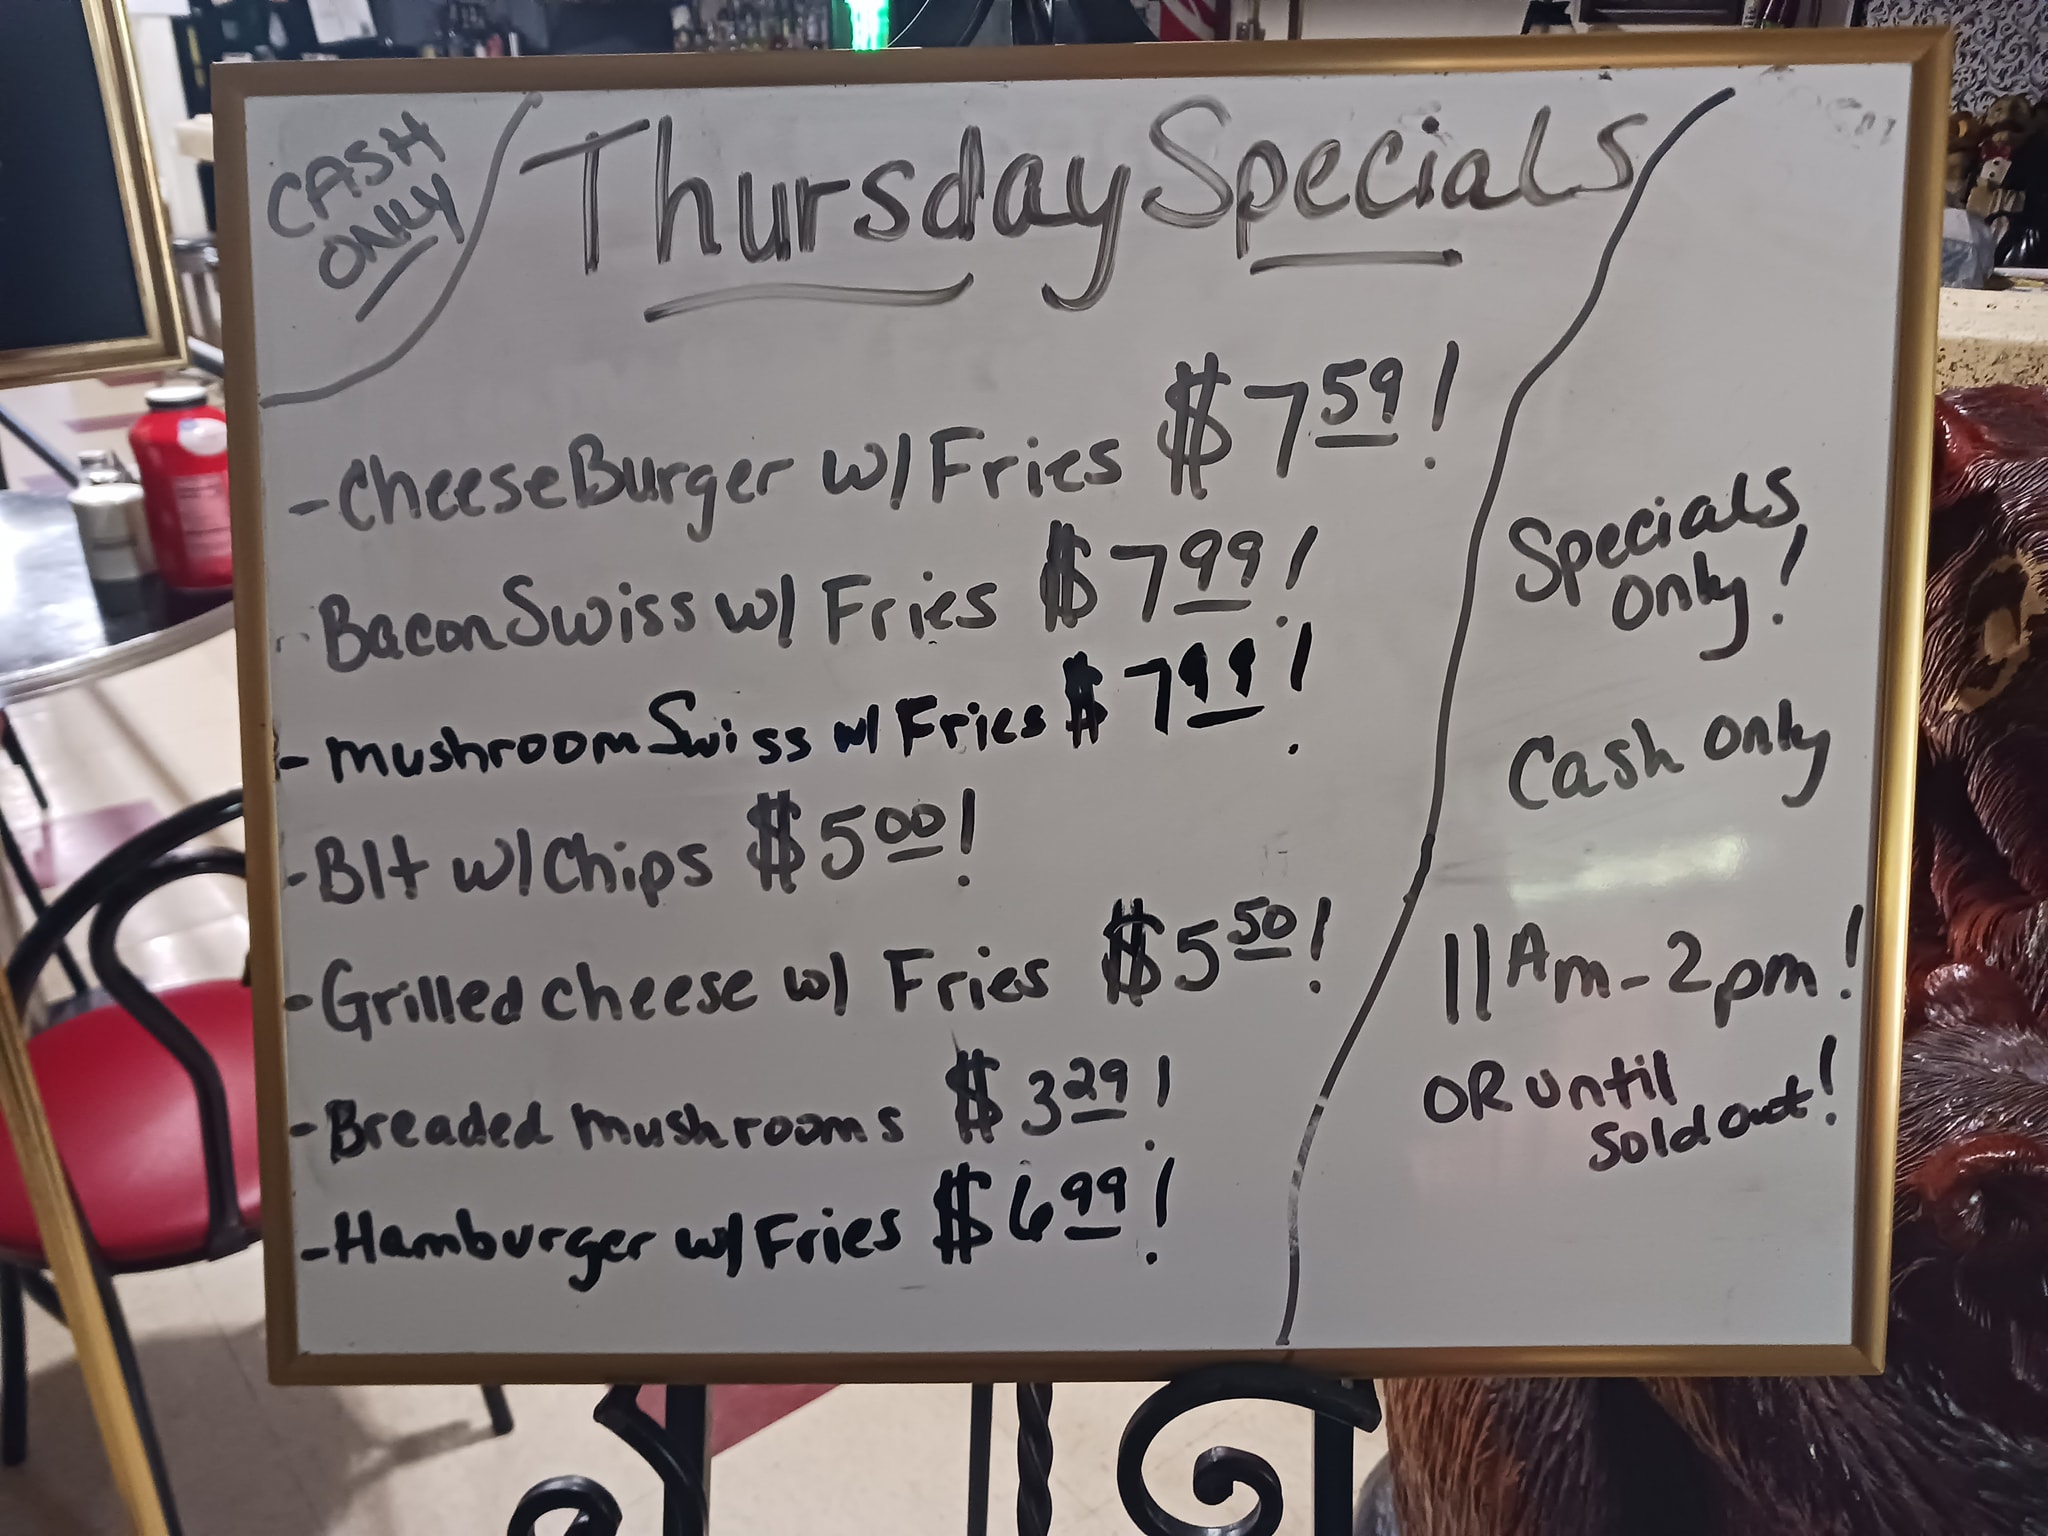 CASH
ONLY
Thursday Specials
- CheeseBurger w/ Fries $7.59!
- Bacon Swiss w/ Fries $7.99!
- mushroom Swiss w/ Fries $7.99!
- Blt w/ Chips $5.00!
- Grilled cheese w/ Fries $5.50!
- Breaded mushrooms $3.29!
- Hamburger w/ Fries $6.99!
Specials
only!
Cash only
11 Am - 2 pm!
OR until
sold out!